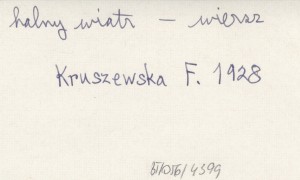 halny wiatr – wiersz
Kruszewska F. 1928
BT/OSE/4399